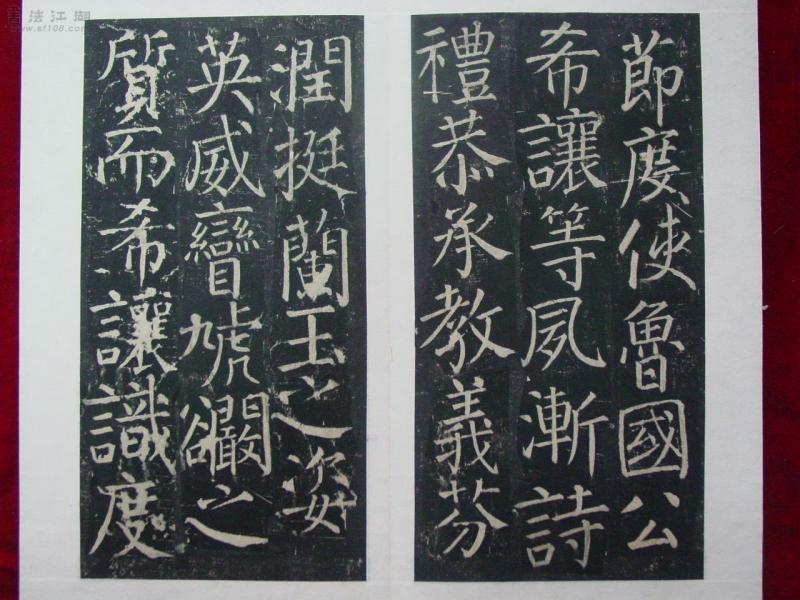 書法江湖
www.sf108.com
節度使魯國公
希讓等夙漸詩
禮恭承教義芬
潤挺蘭玉之姿
英威矕虓之
質而希讓識度